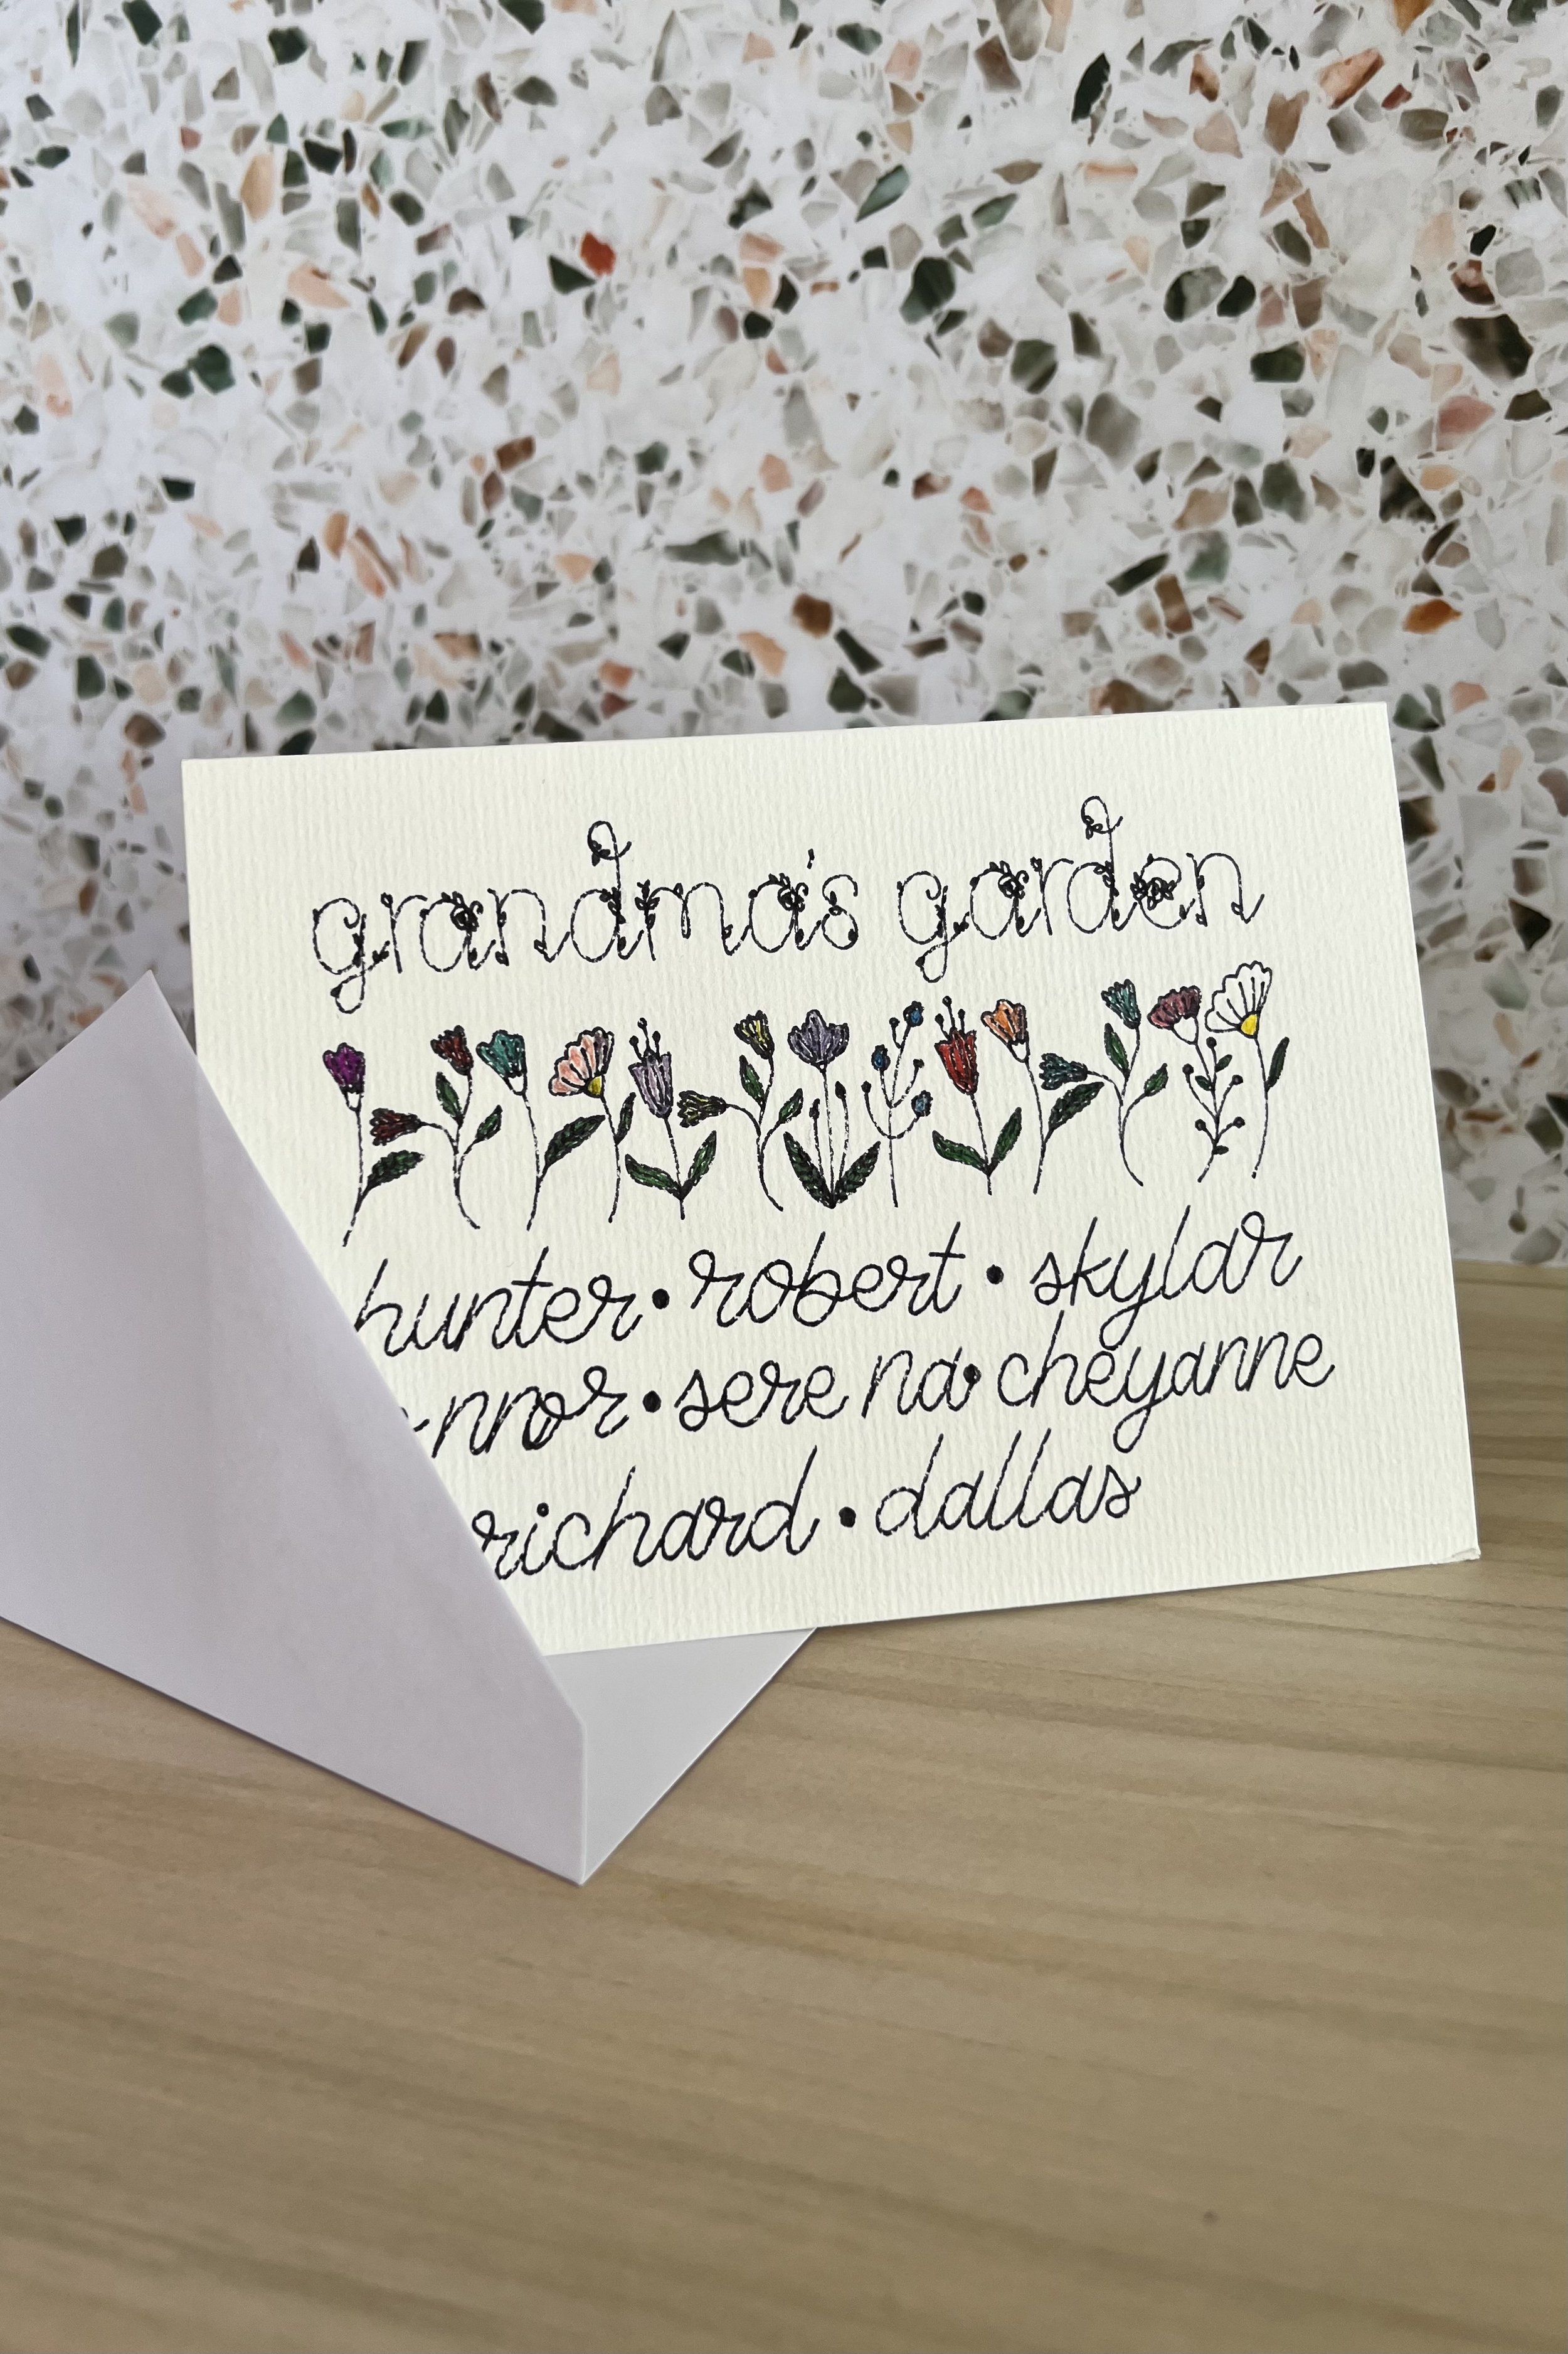 grandma's garden
hunter • robert • skylar
• serena • cheyanne
richard • dallas